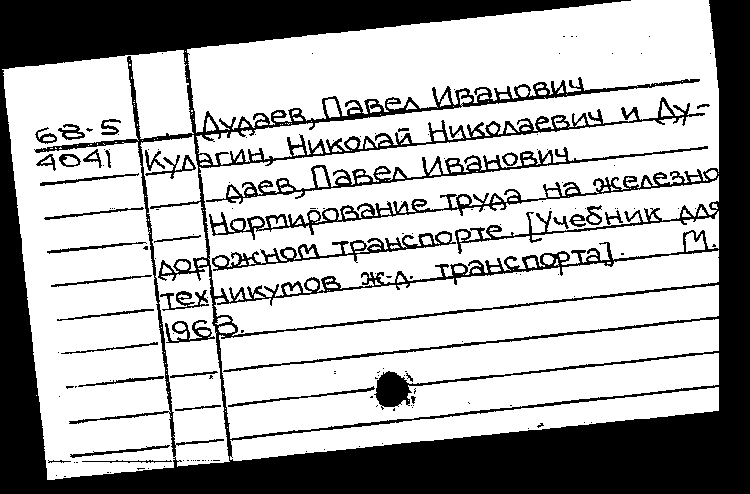 68-5 Дудаев, Павел Иванович
4041 Кулагин, Николай Николаевич и Ду-
даев, Павел Иванович.
Нормирование труда на железно
дорожном транспорте. [Учебник для
техникумов ж.-д. транспорта]. М.
1968.